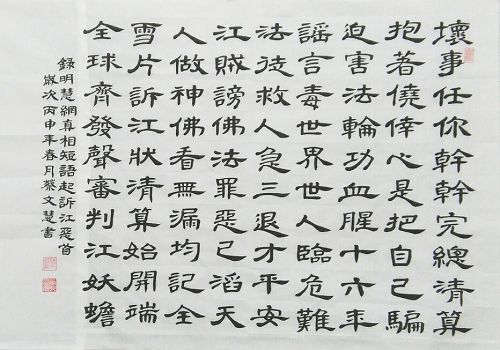 壞事任你幹幹完總清算
抱著僥倖心是把自己騙
迫害法輪功血腥十六年
謠言毒世界世人臨危難
法徒救人急三退才平安
江賊謗佛法罪惡已滔天
人做神佛看無漏均記全
雪片訴江狀清算始開端
全球齊發聲審判江妖蟾
錄明慧網真相短語起訴江惡首
歲次丙申年春月蔡文慧書